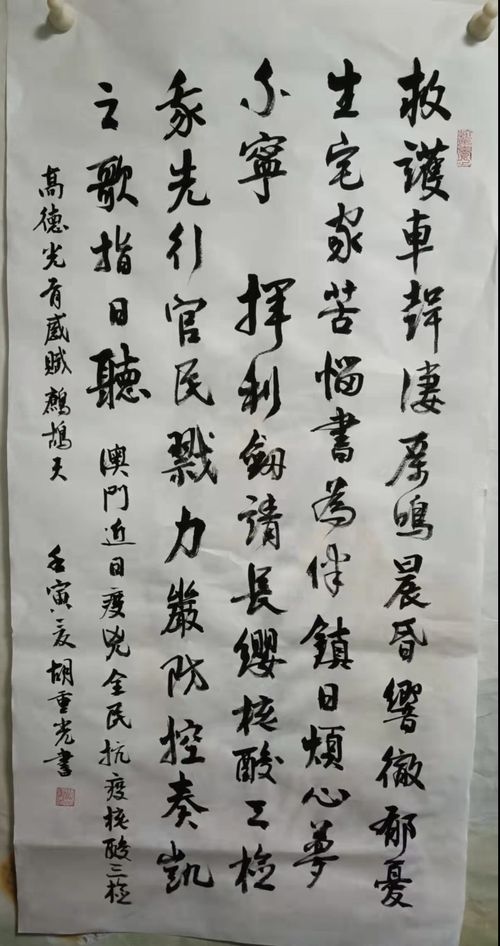 救護車聲凄厲鳴晨昏響徹郁憂
生宅家苦惱書為伴鎮日煩心夢
不寧 揮利劍請長纓核酸三檢
我先行官民戮力嚴防控奏凱
之歌指日聽 澳門近日疫兇全民抗疫核酸三檢
高德光有感賦鷓鴣天 壬寅夏胡重光書